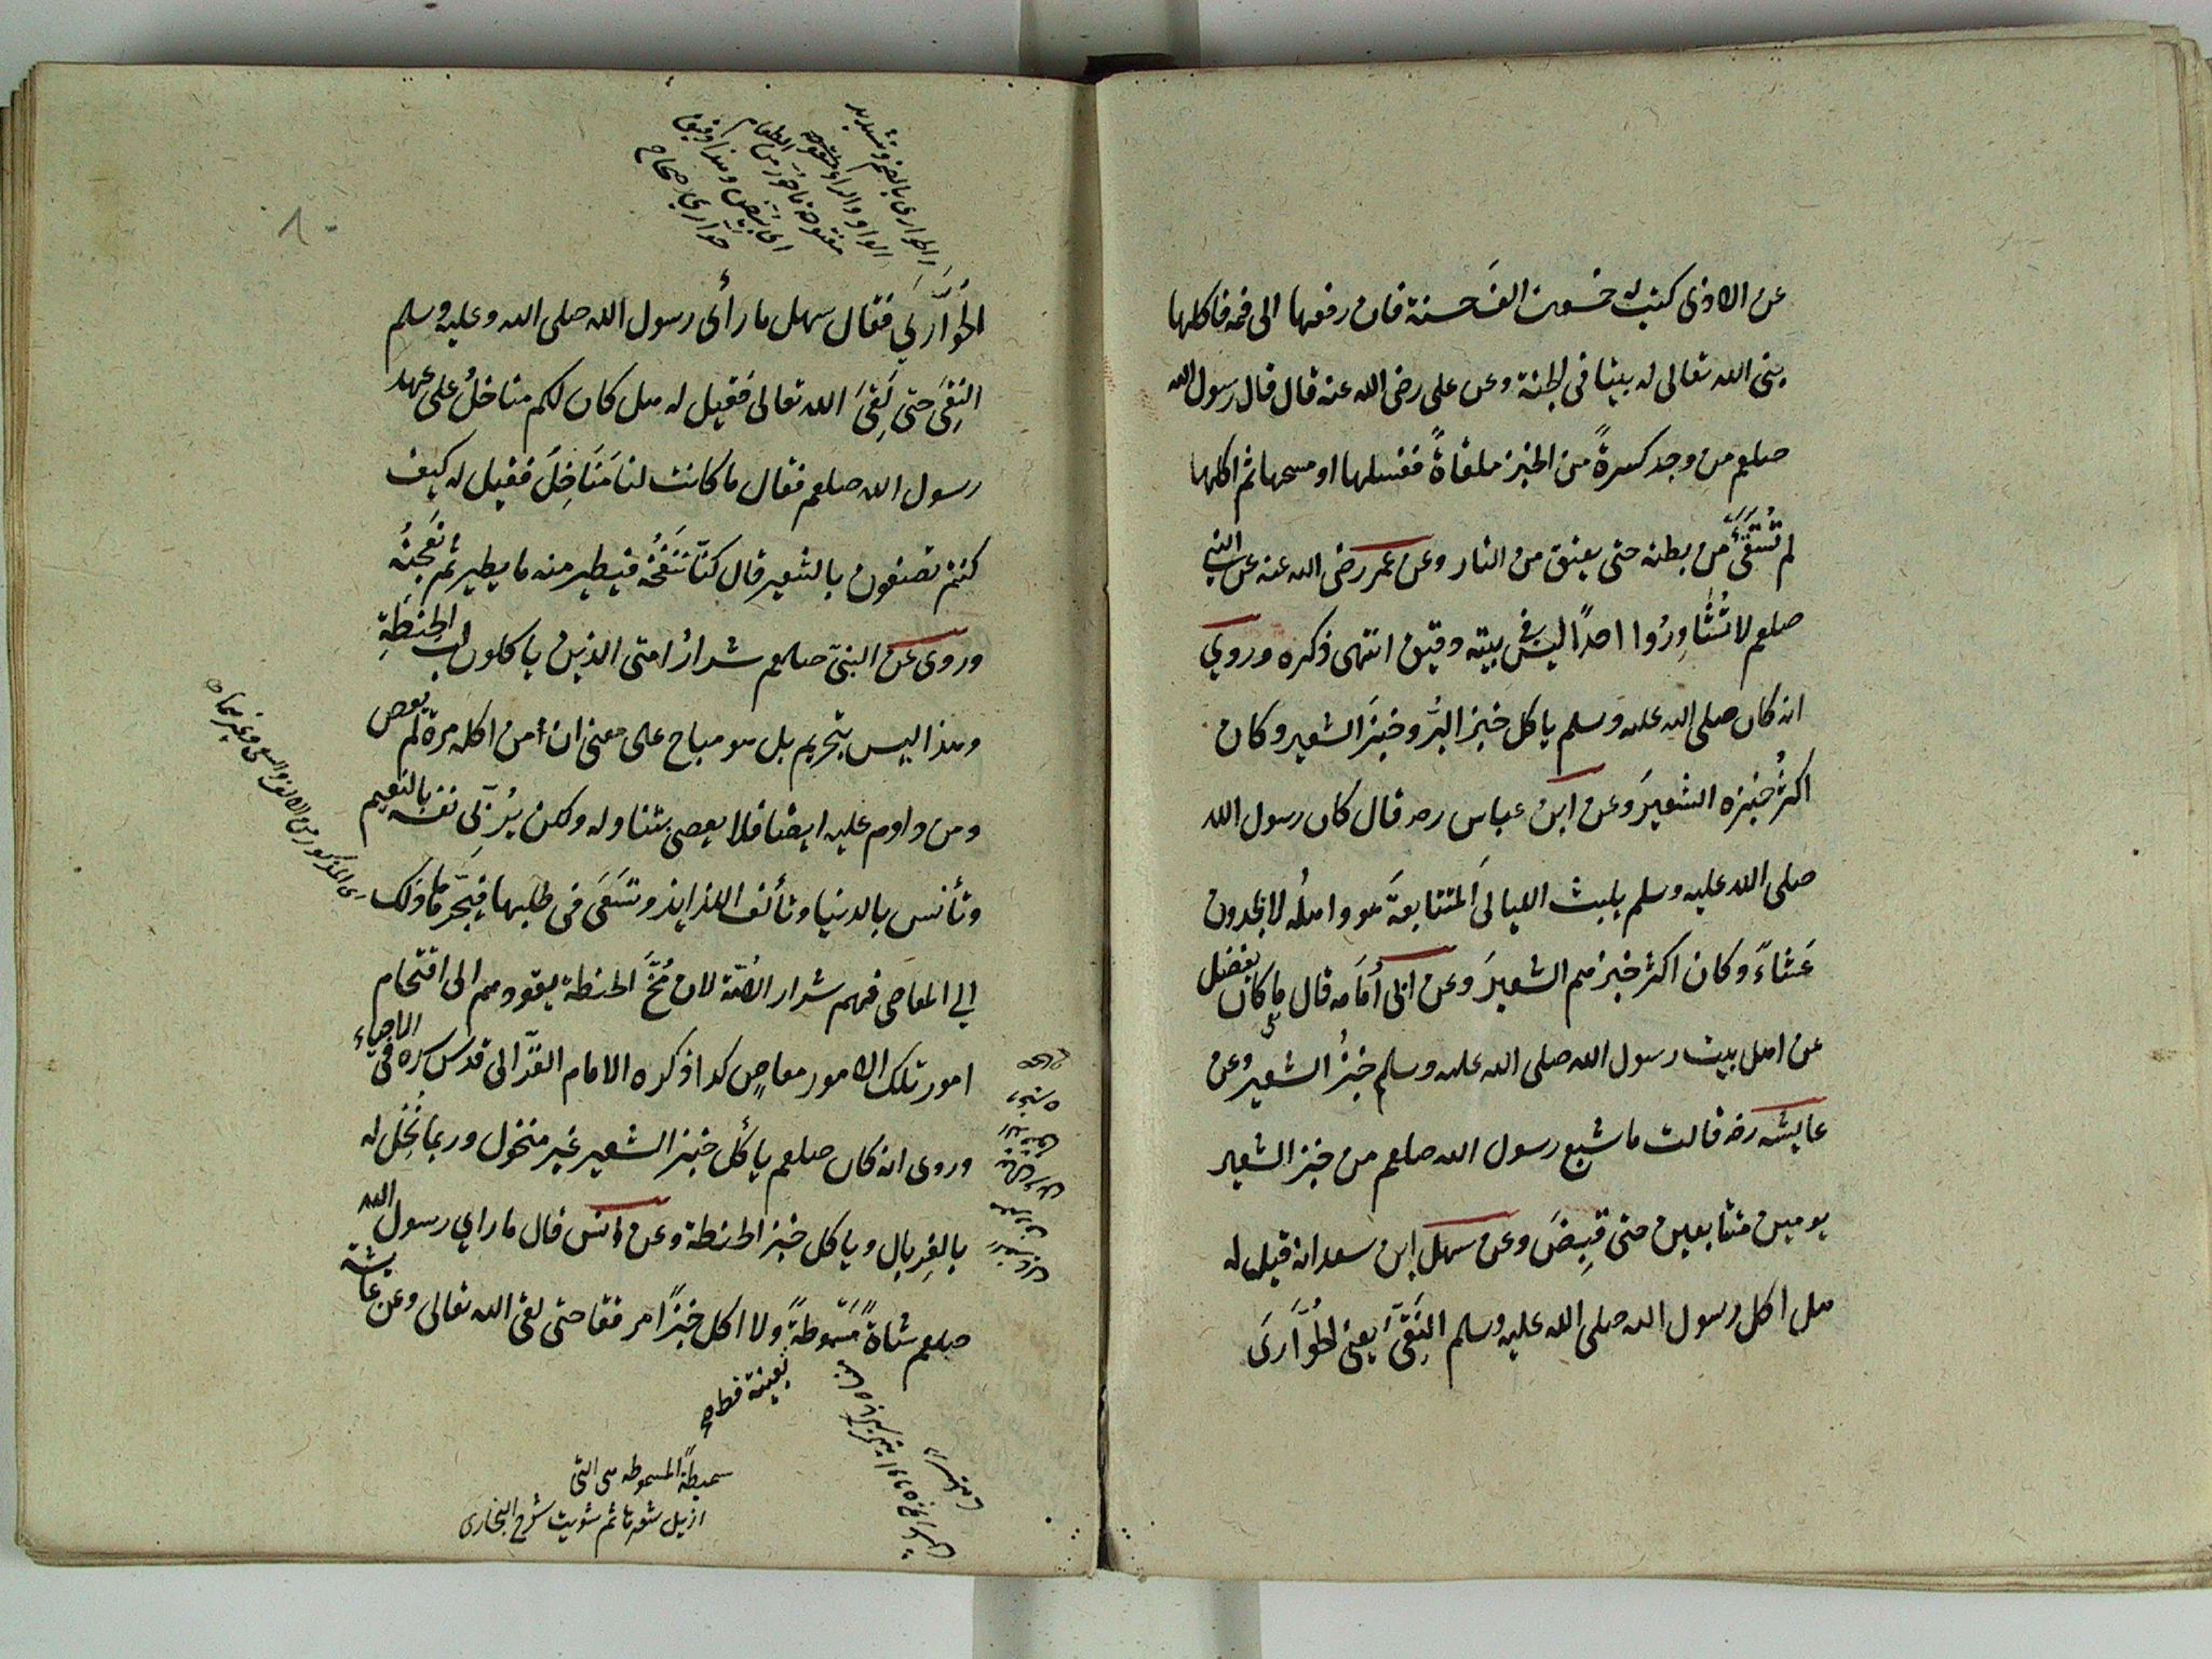 عن الاذى كتبت له خمسون الفَ حسنة فان رفعها الى فمه فاكلها
بنى الله تعالى له بيتا فى الجنة وعن على رضى الله عنه قال قال رسول الله
صلعم من وجد كسرةً من الخبز ملقاةً فغسلها او مسحها ثم اكلها
لم من بطنه حتى يعتق من النار وعن عمر رضى الله عنه عن النبى
صلعم لا تُشَاوِرُوا احداً ليس فى بيته دقيق انتهى ذكره وروي
انه كان صلى الله عليه وسلم ياكل خبز البُر وخبزَ الشعير وكان
اكثرُ خبزه الشعيرَ وعن ابن عباس رضه قال كان رسول الله
صلى الله عليه وسلم يلبث الليالىَ المتتابعةَ هو واهلُه لا يجدون
عَشاءً وكان اكثر خبزهم الشعيرَ وعن ابى أُمَامه قال ما كان يفضل
عن اهل بيت رسول الله صلى الله عليه وسلم خبزُ الشعيرِ وعن
عايشه رضه قالت ما شبع رسول الله صلعم من خبز الشعير
يومين متتابعين حتى قُبِضَ وعن سهل ابن سعد انه قيل له
هل اكل رسول الله صلى الله عليه وسلم النَقىَّ يعنى الحُوَّارَى
الحُوَّارَى بالضم وتشديد
الواو والراء مفتوحة
ما حُوِّرَ من الطعام
اى بُيِّضَ وهذا دقيق
حوارى صحاح
الحُوَّارَى فقال سهل ما رأى رسول الله صلى الله وعليه وسلم
النِقىَّ حتى لَقِىَ الله تعالى فقيل له هل كان لكم مناخلُ على عهد
رسول الله صلعم فقال ما كانت لنا مَنَاخِلَ فقيل له كيف
كنتم تصنعون بالشعير قال كنّا نَنْفُخُه فيطير منه ما يطير ثم نَعْجِنُه
وروى عن النبىّ صلعم شرارُ امتى الذين ياكلون لب الحِنطةِ
وهذا ليس بتحريم بل هو مباح على معنى ان من اكله مرة لم يعص
ومن داوم عليه ايضا فلا يعصى بتناوله ولكن يُربّى نفسه بالنَعيم
وتأنس بالدنيا وتألف اللذايذ وتسَعَى فى طلبها فيَجُرّها ذلك
الي المعاصى فهم شرار الامّة لان مُخّ الحنطة يقودهم الى اقتحام
امور تلك الامور معاصٍ كذا ذكره الامام الغزّالى قدس سره فى الاحياء
وروى انه كان صلعم يأكل خبز الشعير غير منخول وربما نُخِل له
بالغِربال وياكل خبز الحنطة وعن انس قال ما راي رسول الله
صلعم شاةً مَسْمُوطةً ولا اكل خبزًا مرققا حتى لقى الله تعالى وعن عايشة
بعينه قط
سميطةً المسموطه هى التى
ازيل شعرها ثم شويت شرح البخارى